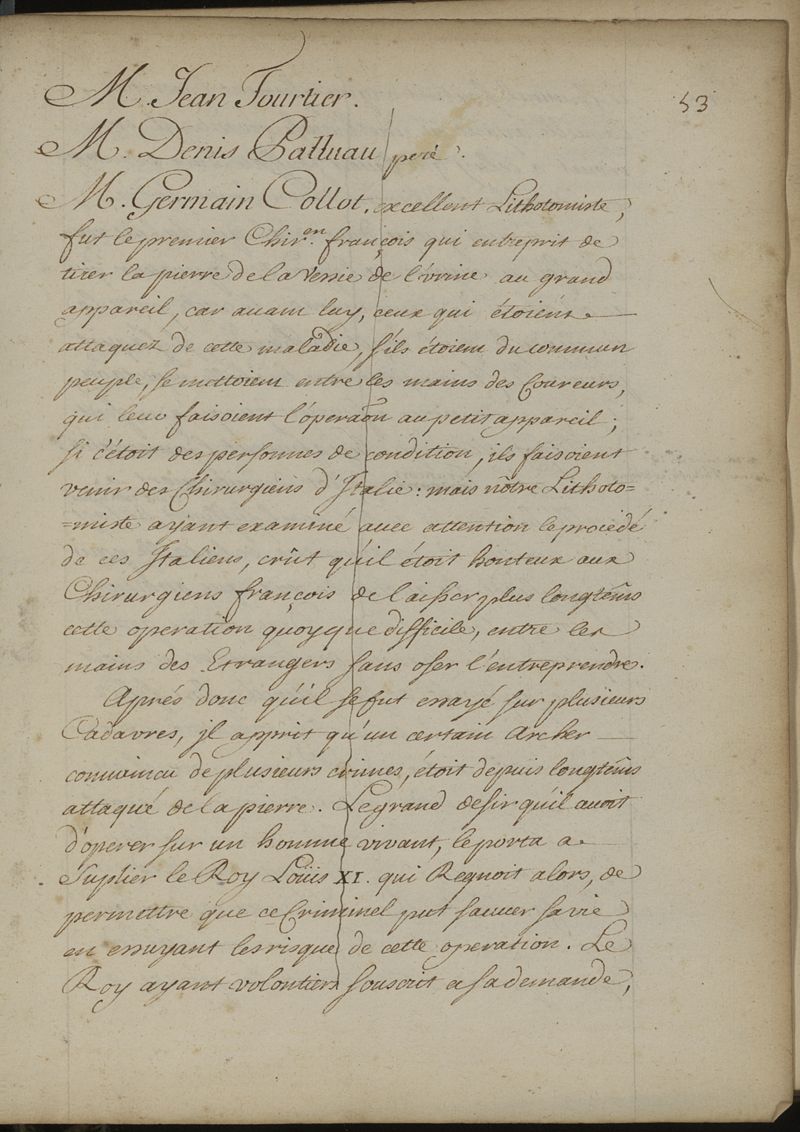 M. Jean Tourtier.
53
M. Denis Palluau pere.
M. Germain Collot, excellent Lithotomiste,
fut le premier Chir.en françois qui entreprit de
tirer la pierre de la Vessie de l'vrine au grand
appareil, car auant luy, ceux qui étoient
attaquez de cette maladie, s'ils étoient du commun
peuple, se mettoient entre les mains des Coureurs,
qui leur faisoient l'óperaõn au petit appareil;
si c'étoit des personnes de condition, ils faisoient
venir des Chirurgiens d'Italie: mais nôtre Lithoto=
=miste ayant examiné auec attention le procedé
de ces Italiens, crût qu'il étoit honteux aux
Chirurgiens françois de laisser plus longtẽms
cette operation quoyque difficile, entre les
mains des Etrangers sans oser l'entreprendre.
Aprés donc qu'il se fut essayé sur plusieurs
Cadavres, jl apprit qu'un certain Archer
convaincu de plusieurs crimes, étoit depuis longtẽms
attaqué de la pierre. Le grand desir qu'il auoit
d'operer sur un homme vivant, le porta a
Suplier le Roy Loüis XI. qui Regnoit alors, de
permettre que ce Criminel put sauuer sa vie
en essuyant les risque de cette operation. Le
Roy ayant volontiers souscrit a sa demande,